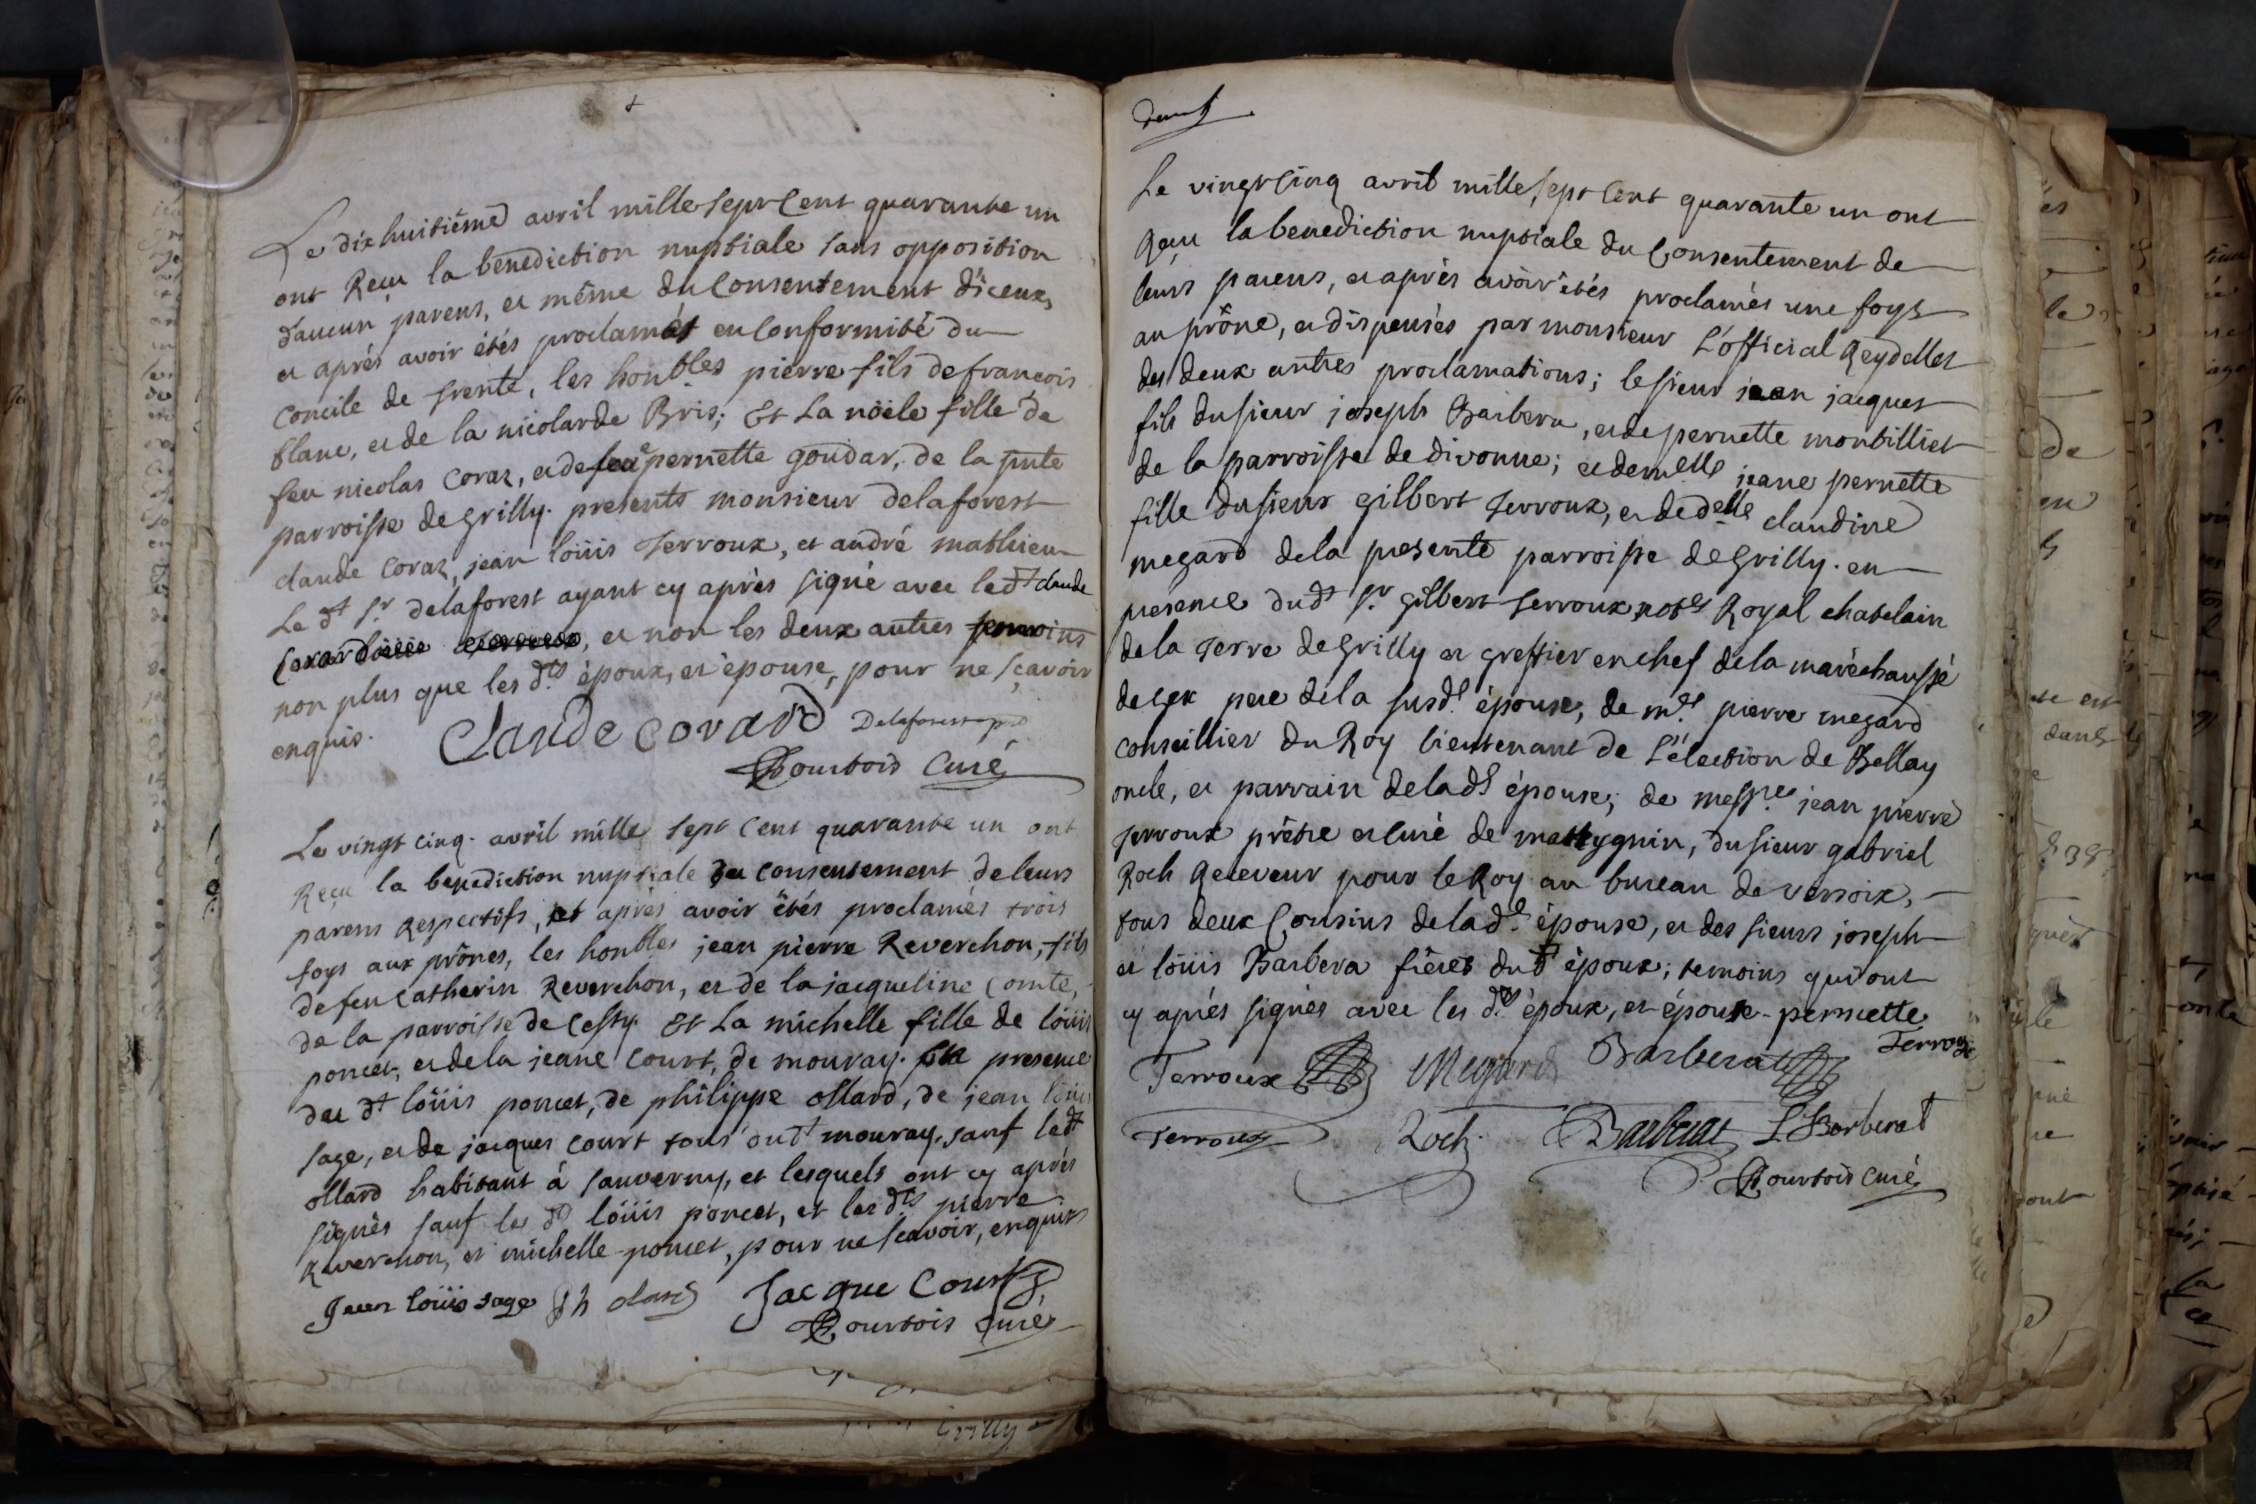 Le dixhuitiême avril mille sept Cent quarante un
ont Reçu la bénédiction nuptiale sans opposition
d'aucun parens, et même du Consentement d'iceux,
et aprés avoir étés proclamés en Conformité du
Concile de trente, les honbles pierre fils de francois
blanc, et de la nicolarde Bris; Et La nöele fille de
feu nicolas Coraz, et de feüe pernette goudar, de la pnte
parroisse de grilly. presents monsieur delaforest
claude Coraz, jean loüis Terroux, et andré mathieu
Le dt Sr delaforest ayant cy aprés signé avec ledt claude
et non les deux autres temoins
non plus que les dts époux, et épouse, pour ne sçavoir
enquis.
Claude Covard Delaforest
Bourtois Curé
Le vingt cinq avril mille sept Cent quarante un ont
Reçu la benediction nuptiale du Consentement de leurs
parens Respectifs, et aprés avoir étés proclamés trois
foys aux prônes, les honbles jean pierre Reverchon, fils
de feu Catherin Reverchon, et de la jacqueline Comte,
de la parroisse de Cessy. Et La michelle fille de loüis
poncet, et de la jeane Court, de mouray. En presence
du dt loüis poncet, de philippe ollard, de jean loüis
sage, et de jacques Court tous dudt mouray, sauf ledt
ollard habitant á sauverny, et lesquels ont cy aprés
signés sauf le dt loüis poncet, et les dts pierre
Reverchon, et michelle poncet, pour ne sçavoir, enquis
Jean loüis sage Ph olard Jacque Court
Bourtois Curé
Le vingt Cinq avril mille sept Cent quarante un ont
Reçu la benediction nuptiale du Consentement de
leurs parens, et aprés avoir étés proclamés une foys
au prône, et dispensés par monsieur L'official Reydellet
des deux autres proclamations; le sieur jean jacques
fils du sieur joseph Barbera, et de pernette monbilliet
de la parroisse de divonne; et demelle jeane pernette
fille du sieur gilbert Terroux, et de delle claudine
megard de la presente parroisse de grilly. en
presence dudt Sr gilbert Terroux, note Royal chatelain
de la Terre de grilly et greffier en chef de la maréchaussé
de Gex pere de la susde épouse, de me pierre megard
Conseillier du Roy lieutenant de L'élection de Bellay
oncle, et parrain de lade épouse; de messire jean pierre
Terroux prêtre et Curé de mattygnin, du sieur gabriel
Roch Receveur pour le Roy au bureau de versoix,
tous deux Cousins de lade épouse, et des sieurs joseph
et loüis Barbera fréres dudt époux; temoins qui ont
cy aprés signés avec les dts époux, et épouse pernette
Terroux Megard Barberat Terroux
Terroux Roch Barberat L Barberat
Bourtois Curé